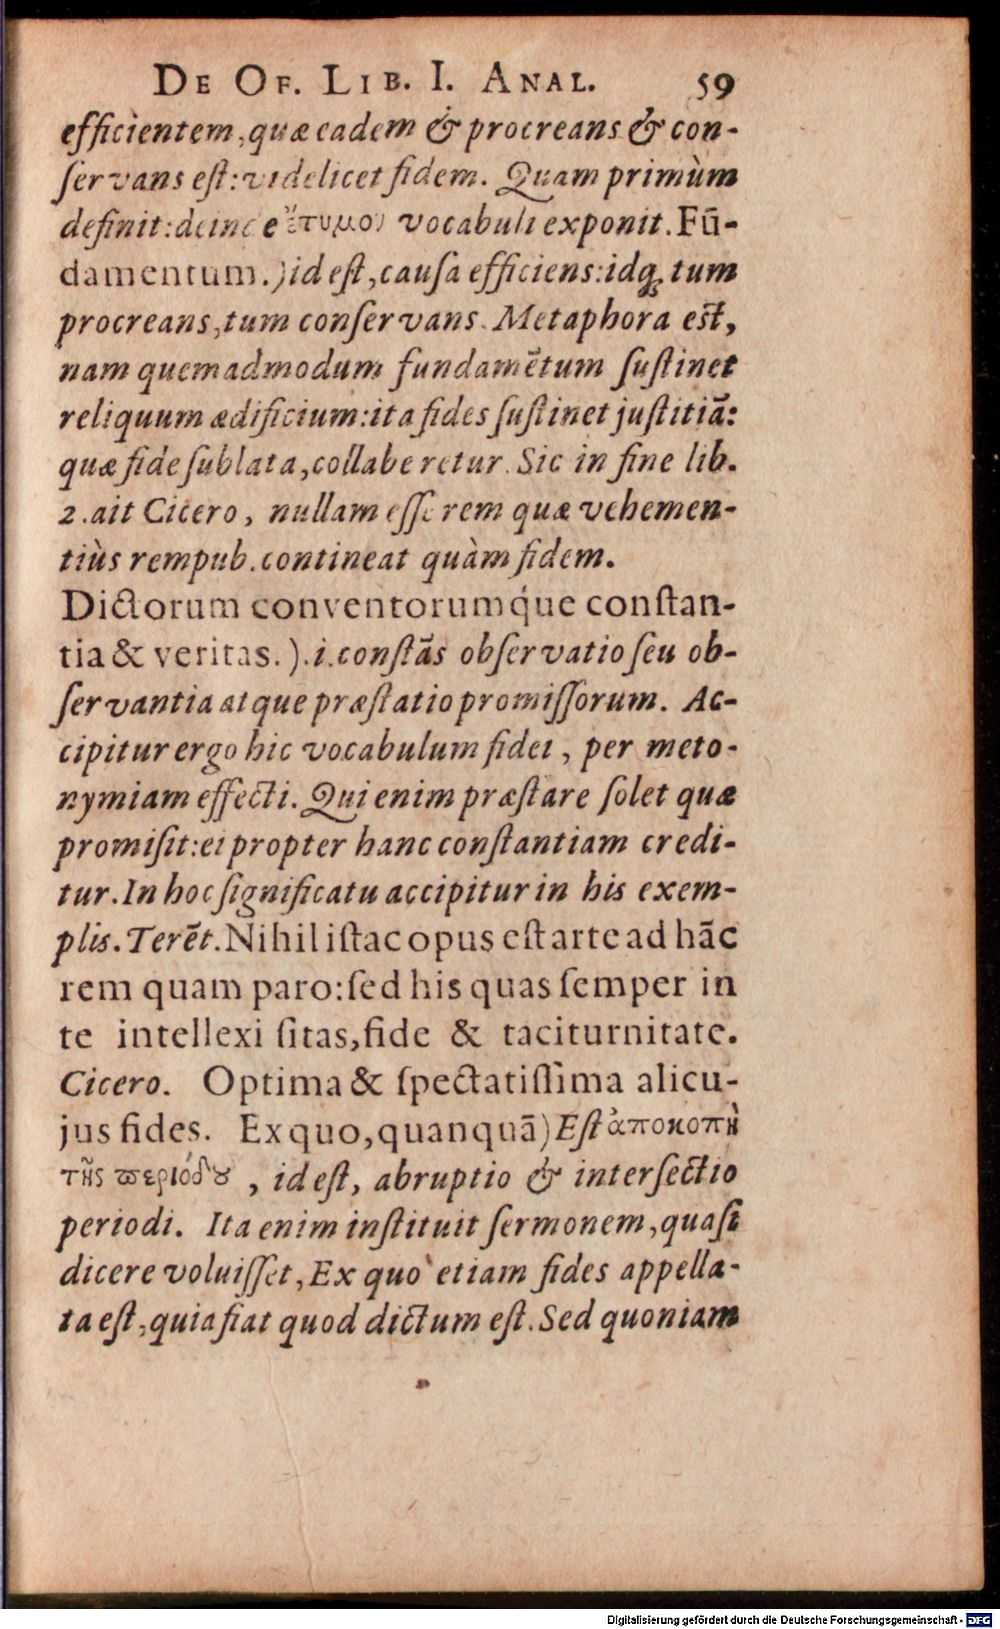 DE OF. LIB. I. ANAL. 59
efficientem, quæ eadem & procreans & con-
ſervans eſt: videlicet fidem. Quam primùm
definit: deinde ἔτυμον vocabuli exponit. Fū-
damentum.) id eſt, cauſa efficiens: idq́; tum
procreans, tum conſervans. Metaphora eſt,
nam quemadmodum fundamētum ſuſtinet
reliquum ædificium: ita fides ſuſtinet juſtitiā:
quæ fide ſublata, collaberetur. Sic in fine lib.
2. ait Cicero, nullam eſſe rem quæ vehemen-
tiùs rempub. contineat quàm fidem.
Dictorum conventorumq́ue conſtan-
tia & veritas.). i. conſtās obſervatio ſeu ob-
ſervantia atque præſtatio promiſſorum. Ac-
cipitur ergo hic vocabulum fidei, per meto-
nymiam effecti. Qui enim præſtare ſolet quæ
promiſit: ei propter hanc conſtantiam credi-
tur. In hoc ſignificatu accipitur in his exem-
plis. Terēt. Nihil iſtac opus eſt arte ad hāc
rem quam paro: ſed his quas ſemper in
te intellexi ſitas, fide & taciturnitate.
Cicero. Optima & ſpectatiſſima alicu-
jus fides. Ex quo, quanquā) Eſt ἀποκοπὴ
τῆς ϖεριόδȣ, id eſt, abruptio & interſectio
periodi. Ita enim inſtituit ſermonem, quaſi
dicere voluiſſet, Ex quo etiam fides appella-
ta eſt, quia fiat quod dictum eſt. Sed quoniam
Digitalisierung gefördert durch die Deutsche Forschungsgemeinschaft - DFG